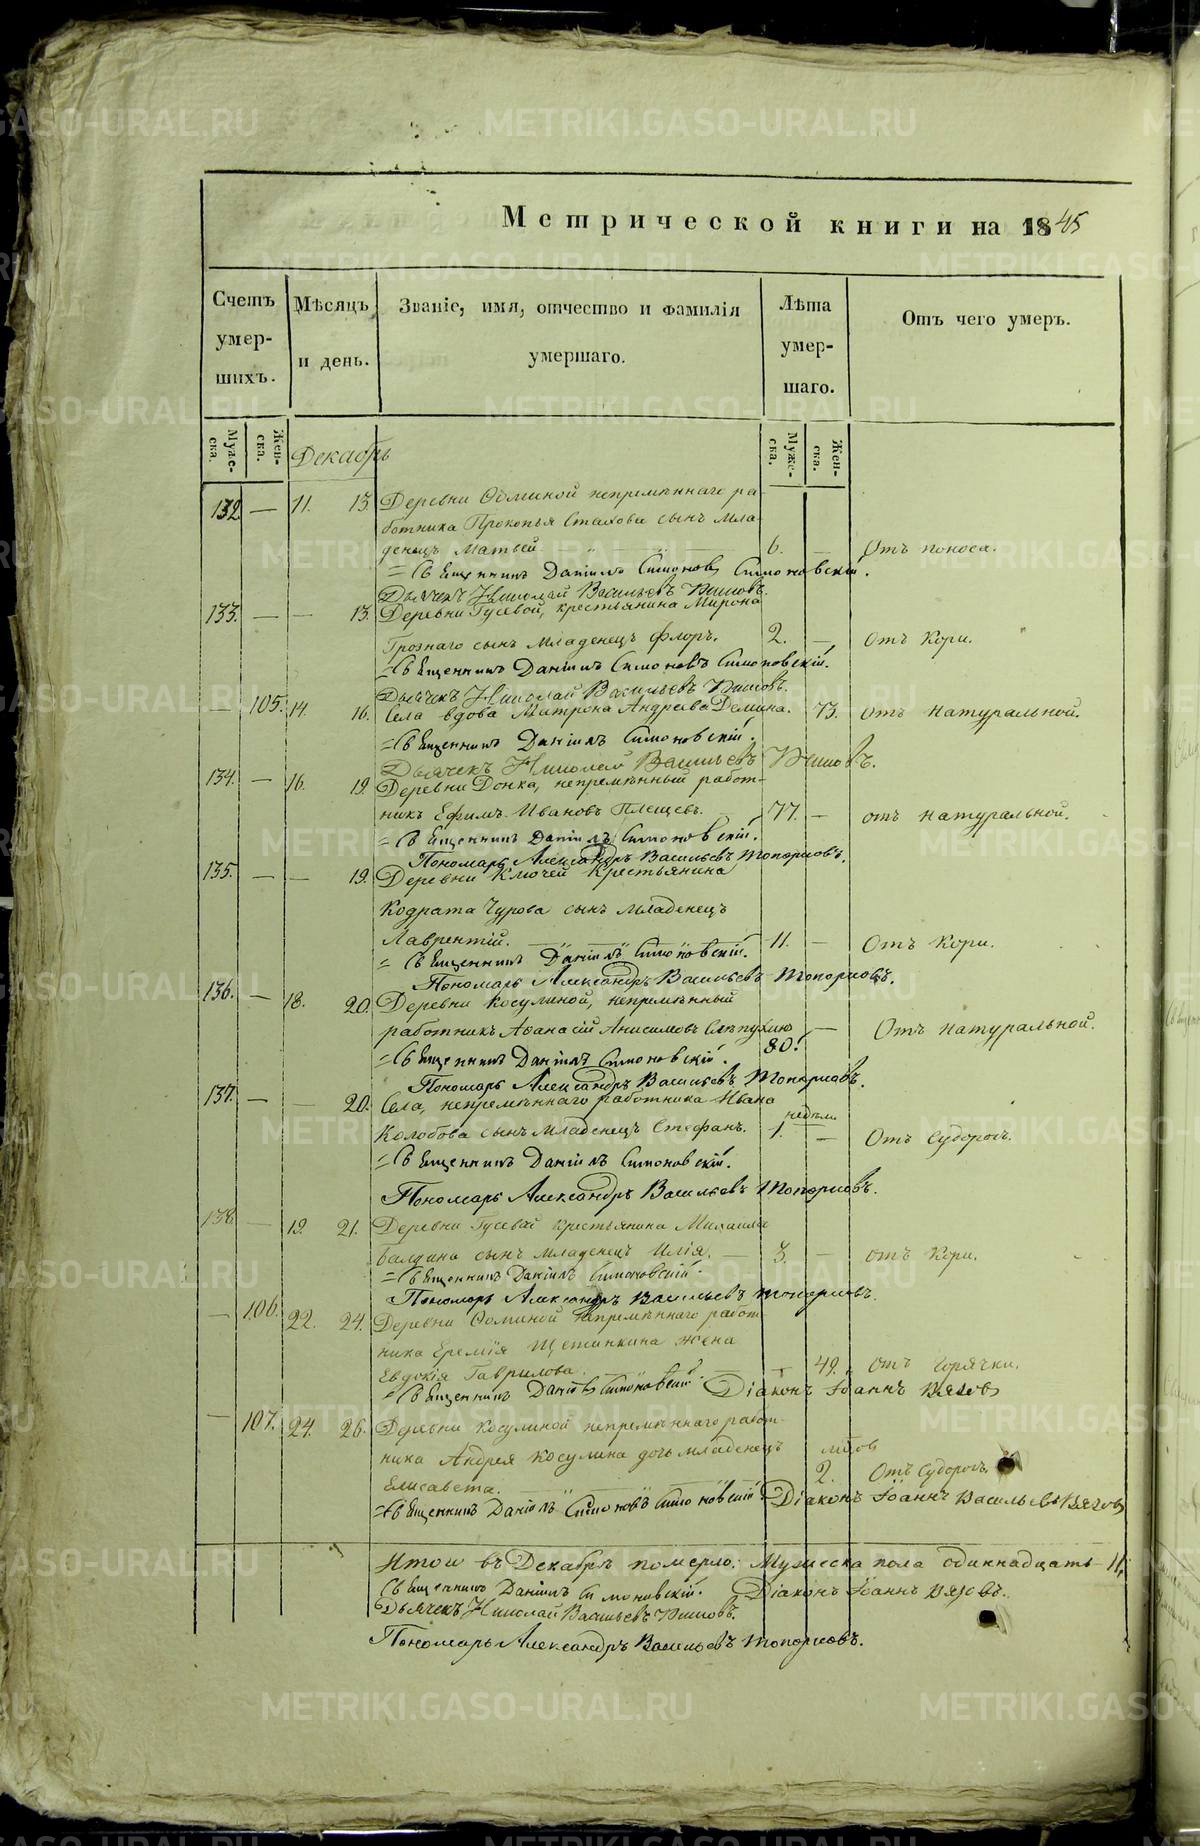 Метрической книги на 1845
Счетъ умер- шихъ.
Мѣсяцъ и день.
Званіе, имя, отчество и фамилія умершаго.
Лѣта умер- шаго.
Отъ чего умеръ.
Муже- ска.
Жен- ска.
Декабрь
Муже- ска.
Жен- ска.
132 — 11. 13. Деревни Ѳоминой непремѣннаго ра-
ботника Прокопья Стахова сынъ мла-
денецъ Матвей 6. — Отъ поноса.
Священникъ Даніилъ Симоновъ Симоновскій.
Дьячекъ Николай Васильевъ
133. — — 13. Деревни Гусевой, крестьянина Мирона
Грознаго сынъ младенецъ Флоръ. 2. — отъ Кори.
Священникъ Даніилъ Симоновъ Симоновскій.
Дьячекъ Николай Васильевъ
105. 14. 16. Села вдова Матрона Андреева Демина. 73. отъ натуральной.
Священникъ Даніилъ Симоновскій.
Дьячекъ Николай Васильевъ
134. — 16. 19. Деревни Донка, непремѣнный работ-
никъ Ефимъ Ивановъ Плещевъ. 77. — отъ натуральной.
Священникъ Даніилъ Симоновскій.
Пономарь Александръ Васильевъ Топорковъ.
135. — — 19. Деревни Ключей Крестьянина
Кодрата Чурова сынъ младенецъ
Лаврентій. 11. — Отъ Кори.
Священникъ Даніилъ Симоновскій.
Пономарь Александръ Васильевъ Топорковъ.
136. — 18. 20. Деревни Косулиной, непремѣнный
работникъ Аѳанасій Анисимовъ 80. — Отъ натуральной.
Священникъ Даніилъ Симоновскій.
Пономарь Александръ Васильевъ Топорковъ.
137. — — 20. Села, непремѣннаго работника Ивана
Колобова сынъ младенецъ Стефанъ. 1. недѣли — Отъ Судорогъ.
Священникъ Даніилъ Симоновскій.
Пономарь Александръ Васильевъ Топорковъ.
138 — 19. 21. Деревни Гусевой крестьянина Михаила
Балдина сынъ младенецъ Илія. — 3. — отъ Кори.
Священникъ Даніилъ Симоновскій.
Пономарь Александръ Васильевъ Топорковъ.
— 106. 22. 24. Деревни Ѳоминой непремѣннаго работ-
ника Еремія Щетинкина жена
Евдокія Гаврилова. — 49. отъ горячки.
Священникъ Даніилъ Симоновскій. Діаконъ Іоаннъ Вязовъ
— 107. 24. 26. Деревни Косулиной непремѣннаго работ-
ника Андрея Косулина дочь младенецъ
Елисавета. 2. Отъ Судорогъ.
Священникъ Даніилъ Симоновъ Симоновскій Діаконъ Іоаннъ Васильевъ Вязовъ
Итого въ Декабрѣ померло: Мужеска пола одиннадцать 11.
Священникъ Даніилъ Симоновскій. Діаконъ Іоаннъ Вязовъ.
Дьячекъ Николай Васильевъ
Пономарь Александръ Васильевъ Топорковъ.
METRIKI.GASO-URAL.RU